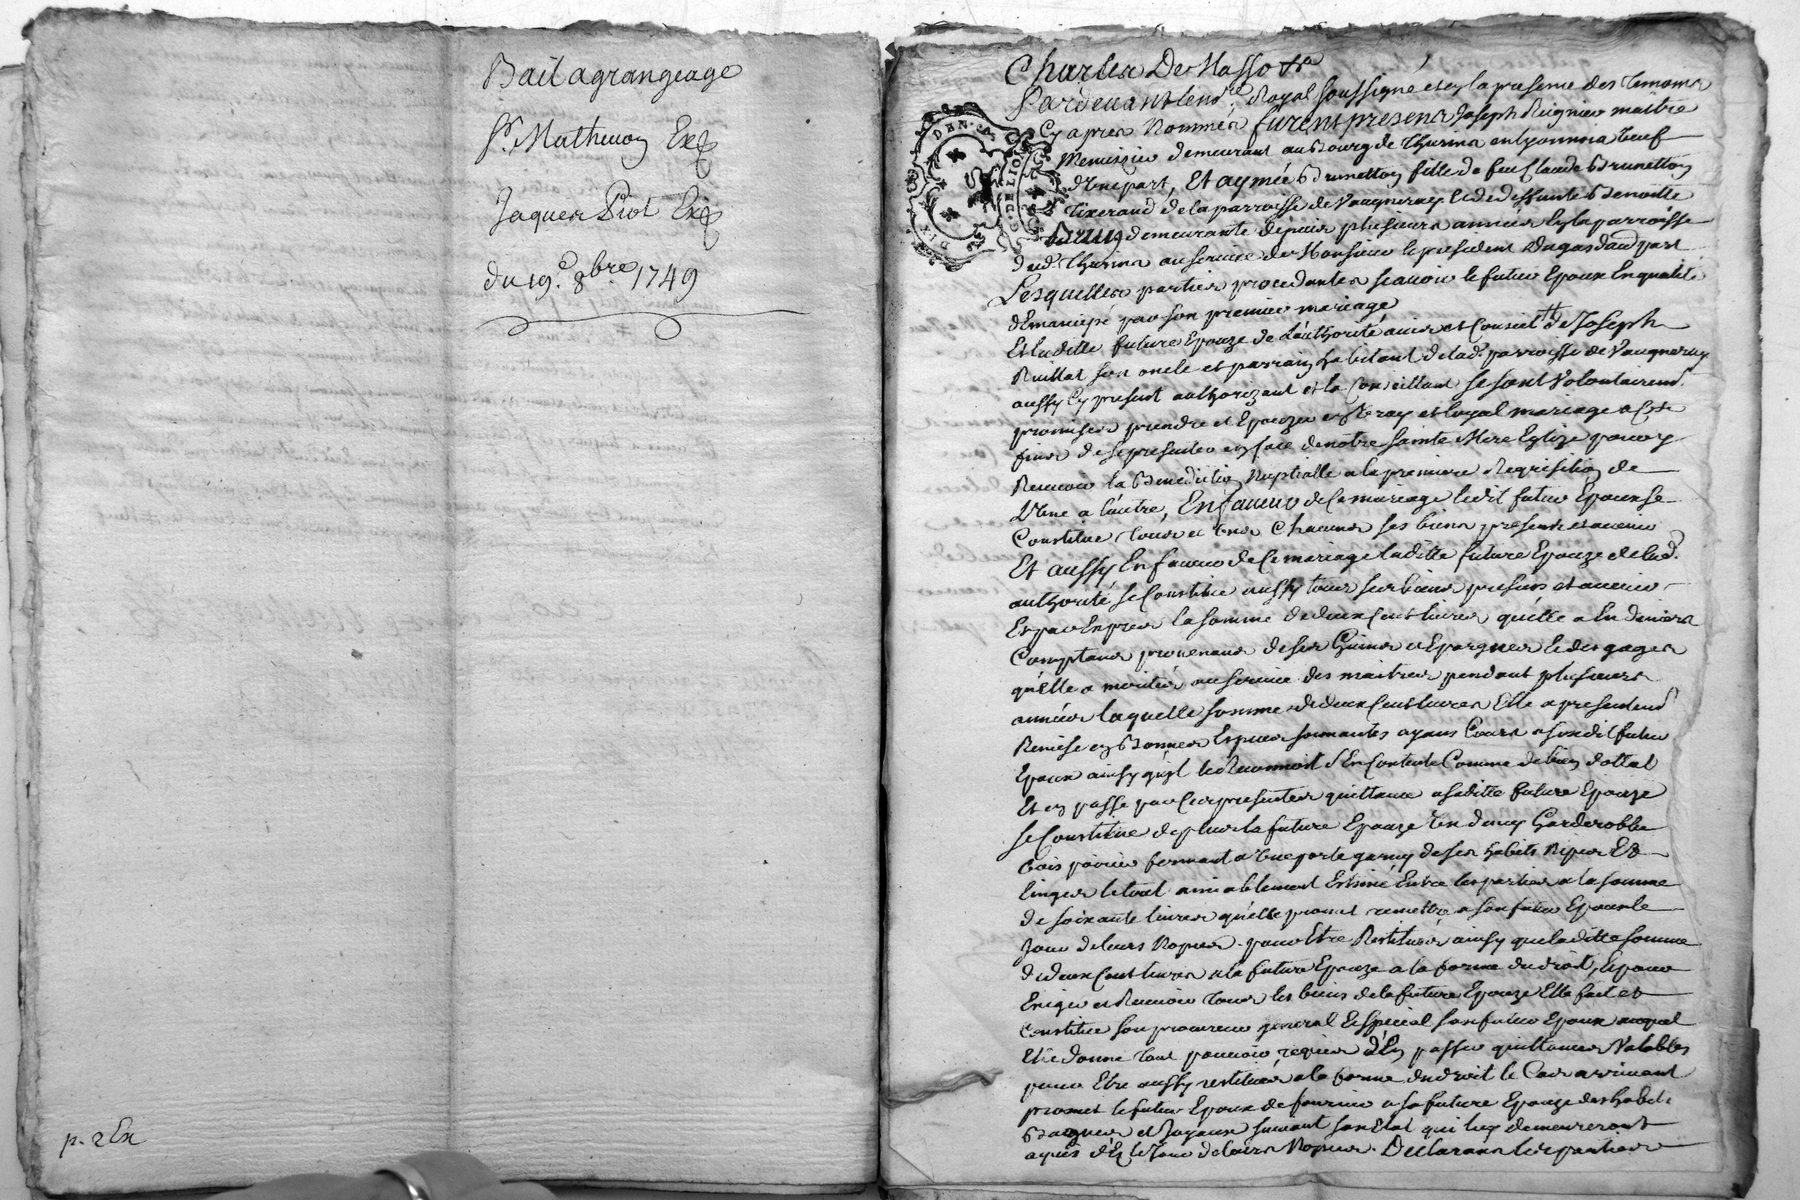 Bail a grangeage
Sr. Mathevon Ex
Jaques Piot Ex
du 19e. 8bre. 1749
p. 2 Ex
Charles De Masso &a
Pardevant le nore. Royal soussigné et en la presence des temoins
Cy apres Nommés furent presens Joseph Reignier maitre
Menuizier demeurant au Bourg de Thurins en Lyonnois veuf
d'Une part, Et aymée Brunetton fille de feu Claude Brunetton
Tixerand de la parroisse de Vaugneray et de deffunte Benoitte
demeurante depuis plusieurs années en la parroisse
dud. Thurins au service de Monsieur le president Dugas d'aud. part
Lesquelles parties procedantes sçavoir le futur Epoux En qualité
d'Emancipé par son premier mariage
Et laditte future Epouze de L'authorité avis et Conseil de Joseph
Ruillat son oncle et parrain habitant de lad. parroisse de Vaugneray
aussy Cy present authorizant et la Conseillant se sont Volontairemt.
promises prendre et Epouzer en vray et loyal mariage a Cette
fin de se presenter en face de notre Sainte Mere Eglize pour y
Recevoir la Benediction Nuptialle a la premiere Requisition de
L'Une a l'autre, En faveur de Ce mariage ledit futur Epoux Se
Constitue tous et Uns Chacuns ses biens presents et avenir
Et aussy En faveur de Ce mariage laditte future Epouze de lad.
authorité se Constitue aussy tous ses biens presens et avenir
Et par Exprès la somme de deux Cent livres qu'elle a En deniers
Comptans provenans de ses Gains et Epargnes et des gages
qu'Elle a mérités au service des maitres pendant plusieurs
années laquelle somme de deux Cent livres Elle a presentemt.
Remise en Bonnes Especes sonnantes ayans Cours a sondit futur
Epoux ainsy qu'il le Reconnoit S'En Contente Comme de bien dottal
Et en passe par Ces presentes quittance a saditte future Epouze
Se Constitue de plus la future Epouze Un demy Garderobbe
bois poirier fermant a Une porte garny de ses habits Nipes Et
linges le tout amiablement Estimé Entre les parties a la somme
de soixante livres qu'elle promet remettre a son futur Epoux le
Jour de leurs Nopces pour Etre Restituée ainsy que laditte somme
de deux Cent livres a la future Epouze a la forme du droit, Et pour
Exiger et Recevoir tous les biens de la future Epouze Elle fait et
Constitue son procureur general Et Special son futur Epoux auquel
Elle donne tout pouvoir requis d'En passer quittances Valables
pour Etre aussy restitués a la forme du droit le Cas arrivant
promet le futur Epoux de fournir a sa future Epouze des habits
Bagues et Joyaux suivant son Etat qui luy demeureront
acquis dès le Jour de leurs Nopces. Declarans les parties